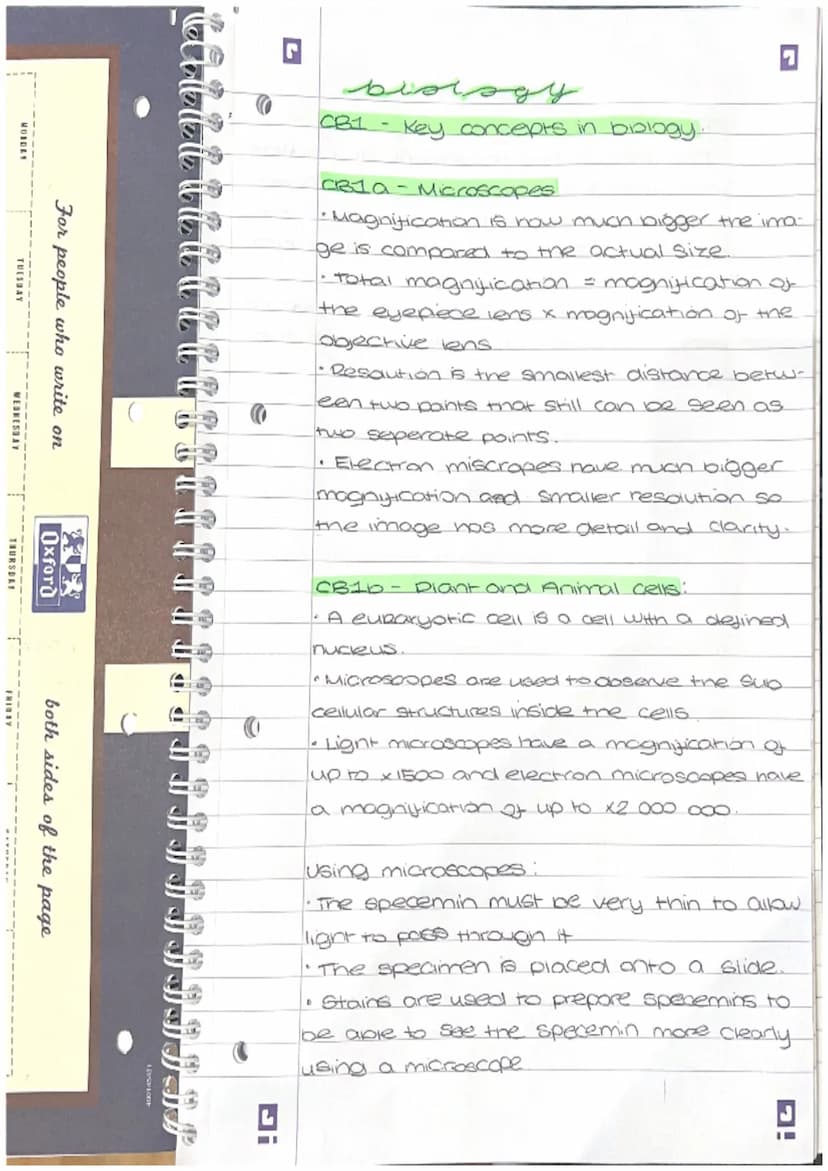 biology
CB1 - Key concepts in biology.
CB1a - Microscopes
· Magnification is how much bigger the ima-
ge is compared to the actual size.
· Total magnification = magnification of
the eyepiece lens x magnification of the
objective lens
· Resolution is the smallest distance betw-
een two points that still can be seen as
two seperate points.
· Electron miscropes have much bigger
magnification and smaller resolution so
the image has more detail and clarity.
CB1b - Plant and Animal cells:
· A eukaryotic cell is a cell with a defined
nucleus.
· Microscopes are used to observe the sub
cellular structures inside the cells
· Light microscopes have a magnification of
up to x1500 and electron microscopes have
a magnification of up to x2 000 000.
using microscopes:
· The specemin must be very thin to allow
light to pass through it
· The specimen is placed onto a slide.
· Stains are used to prepare specemins to
be able to see the specemin more clearly
using a microscope
For people who write on
Oxford
both sides of the page
MONDAY
TUESDAY
WEDNESDAY
THURSDAY
FRIDAY